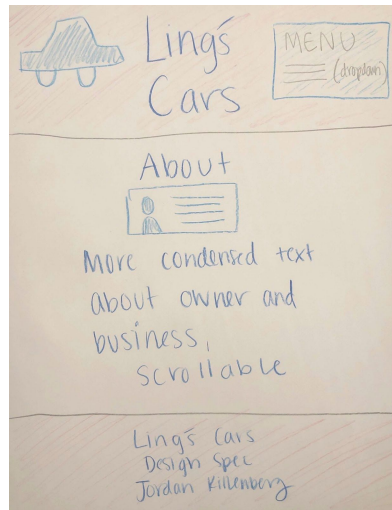 Ling's
Cars
MENU
(dropdown)
About
More condensed text
about owner and
business,
scrollable
Ling's Cars
Design Spec
Jordan Killenberg